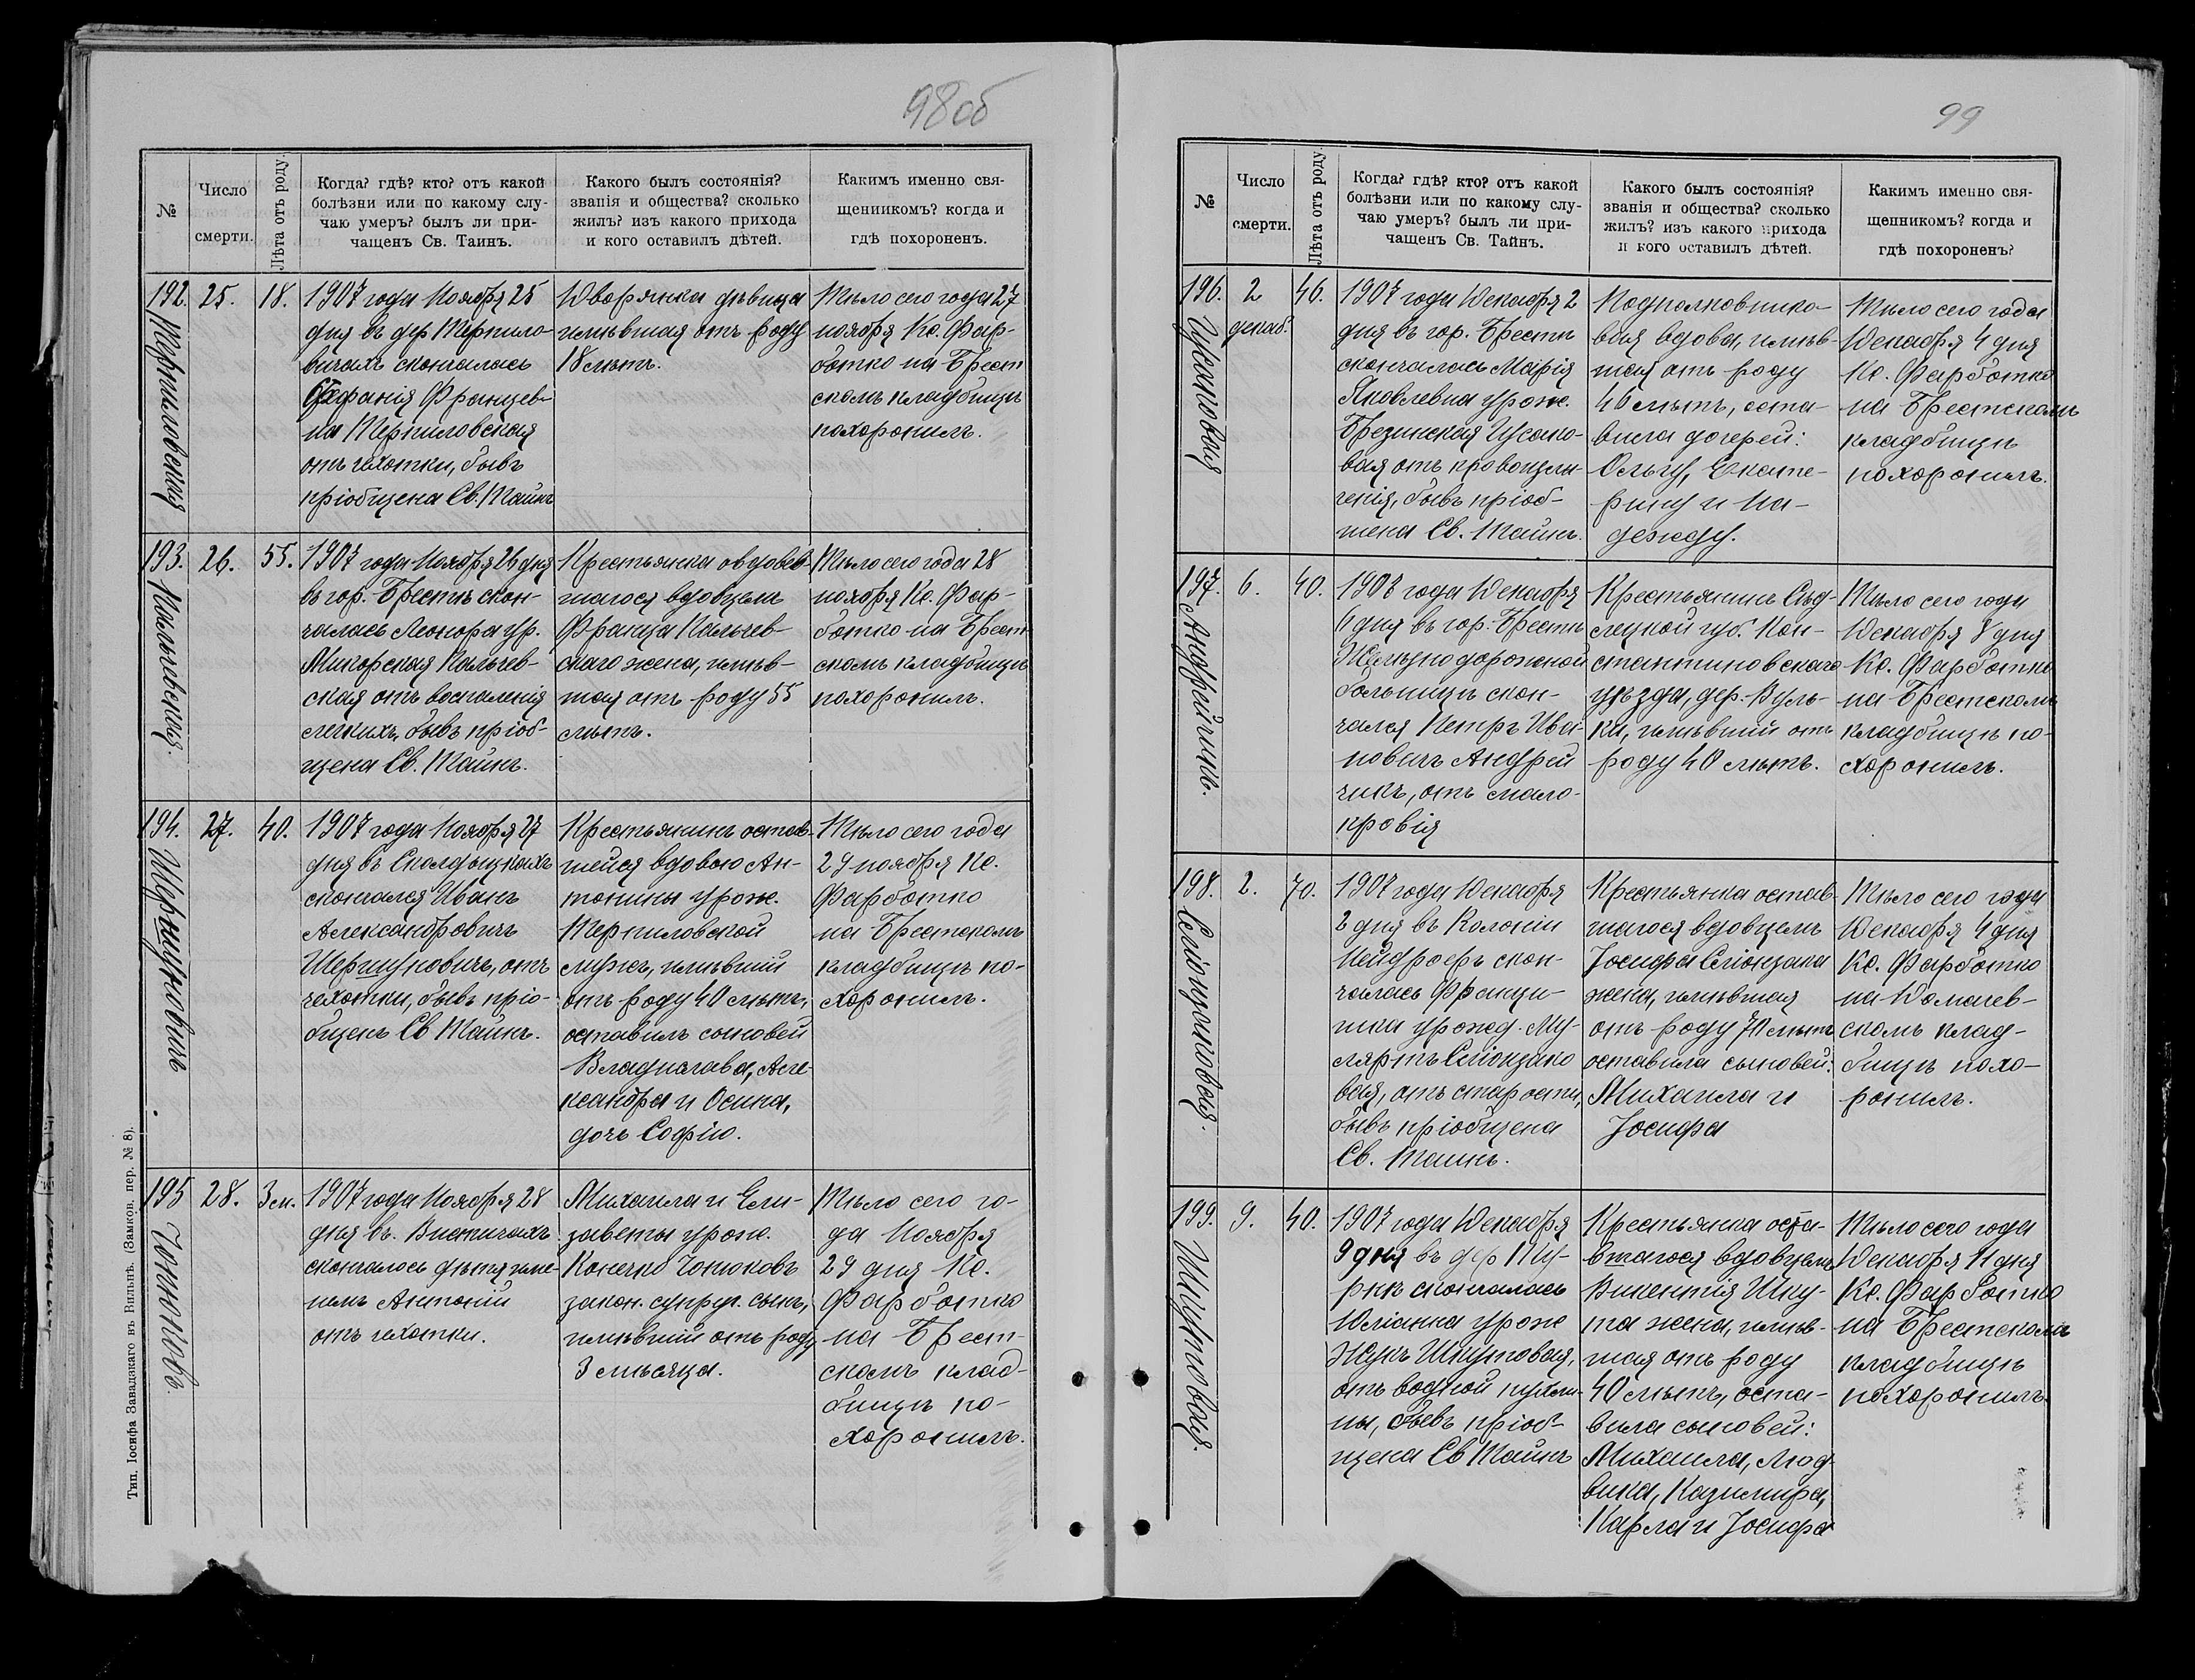 98об
№
Число
смерти.
Лѣта отъ роду.
Когда? гдѣ? кто? отъ какой
болѣзни или по какому слу-
чаю умеръ? былъ ли при-
чащенъ Св. Таинъ.
Какого былъ состоянія?
званія и общества? сколько
жилъ? изъ какого прихода
и кого оставилъ дѣтей.
Какимъ именно свя-
щенникомъ? когда и
гдѣ похороненъ.
192.
Терпиловская
25.
18.
1907 года Ноября 25
дня въ дер Терпило-
вичахъ скончалась
Францев-
на Терпиловская
отъ чахотки, бывъ
пріобщена Св. Таинъ
Дворянка дѣвица
имѣвшая отъ роду
18 лѣтъ.
Тѣло сего года 27
ноября Кс. Фар-
ботко на Брест
скомъ кладбищѣ
похоронилъ.
193.
Кальчевская.
26.
55.
1907 года Ноября 26 дня
въ гор. Брестѣ скон-
чалась Леонора ур.
Микорская Кальчев-
ская отъ воспаленія
легкихъ, бывъ пріоб-
щена Св. Таинъ.
Крестьянка овдовѣв-
шагося вдовцемъ
Франца Кальчев-
скаго жена, имѣв-
шая отъ роду 55
лѣтъ.
Тѣло сего года 28
ноября Кс. Фар-
ботко на Брест-
скомъ кладбищѣ
похоронилъ.
194.
Шершуновичъ
27.
40.
1907 года Ноября 27
дня въ
скончался Иванъ
Александровичъ
Шершуновичъ, отъ
чахотки, бывъ пріо-
бщенъ Св Таинъ.
Крестьянинъ остав-
шейся вдовою Ан-
тонины урож.
Терпиловской
мужъ, имѣвшій
отъ роду 40 лѣтъ,
оставилъ сыновей
Владислава, Але-
ксандра и Осипа,
дочь Софію.
Тѣло сего года
29 ноября Кс.
Фарботко
на Брестскомъ
кладбищѣ по-
хоронилъ.
195
Чонюковъ
28.
3 м.
1907 года Ноября 28
дня въ. Вистичахъ
скончалось дитя име-
немъ Антоній
отъ чахотки.
Михаила и Ели-
заветы урож.
Конечко Чонюковъ
закон. супруг. сынъ,
имѣвшій отъ роду
3 мѣсяца.
Тѣло сего го-
да Ноября
29 дня Кс.
Фарботко
на Брест-
скомъ клад-
бищѣ по-
хоронилъ.
Тип. Іосифа Завадзкаго въ Вильнѣ. (Замков. пер. № 8).
99
№
Число
смерти.
Лѣта отъ роду.
Когда? гдѣ? кто? отъ какой
болѣзни или по какому слу-
чаю умеръ? былъ ли при-
чащенъ Св. Тайнъ.
Какого былъ состоянія?
званія и общества? сколько
жилъ? изъ какого прихода
и кого оставилъ дѣтей.
Какимъ именно свя-
щенникомъ? когда и
гдѣ похороненъ?
196.
Усаковая
2
декаб.
46.
1907 года Декабря 2
дня въ гор. Брестѣ
скончалась Марія
Яковлевна урож.
Брезинская Усако-
вая отъ кровоизлі-
янія, бывъ пріоб-
щена Св. Таинъ.
Подполковнико-
вая вдова, имѣв-
шая отъ роду
46 лѣтъ, оста-
вила дочерей:
Ольгу, Екате-
рину и На-
дежду.
Тѣло сего года
Декабря 4 дня
Кс. Фарботко
на Брестскомъ
кладбищѣ
похоронилъ.
197.
Андрейчикъ.
6.
40.
1907 года Декабря
6 дня въ гор. Брестѣ
Желѣзнодорожной
больницѣ скон-
чался Петръ Ива-
новичъ Андрей
чикъ, отъ мало-
кровія
Крестьянинъ Сѣд-
лецкой губ. Кон-
стантиновскаго
уѣзда, дер. Вуль-
ки, имѣвшій отъ
роду 40 лѣтъ.
Тѣло сего года
Декабря 8 дня
Кс. Фарботко
на Брестскомъ
кладбищѣ по-
хоронилъ.
198.
2.
70.
1907 года Декабря
2 дня въ Колоніи
Нейдрофъ скон-
чалась Франци-
шка урожд.

вая, отъ старости,
бывъ пріобщена
Св. Таинъ.
Крестьянка остав-
шагося вдовцемъ
Іосифа
жена, имѣвшая
отъ роду 70 лѣтъ
оставила сыновей:
Михаила и
Іосифа
Тѣло сего года
Декабря 4 дня
Кс. Фарботко
на Домачев-
скомъ клад-
бищѣ похо-
ронилъ.
199.
Шкутовая.
9.
40.
1907 года Декабря
9 дня въ дер
скончалась
Юліанна урож
Жукъ Шкутовая,
отъ водяной
бывъ пріоб-
щена Св Таинъ
Крестьянка оста-
вшагося вдовцемъ
Викентія Шку-
та жена, имѣв-
шая отъ роду
40 лѣтъ, оста-
вила сыновей:
Михаила, Люд
вика, Казимира,
Карла и Іосифа
Тѣло сего года
Декабря 11 дня
Кс. Фарботко
на Брестскомъ
кладбищѣ
похоронилъ.